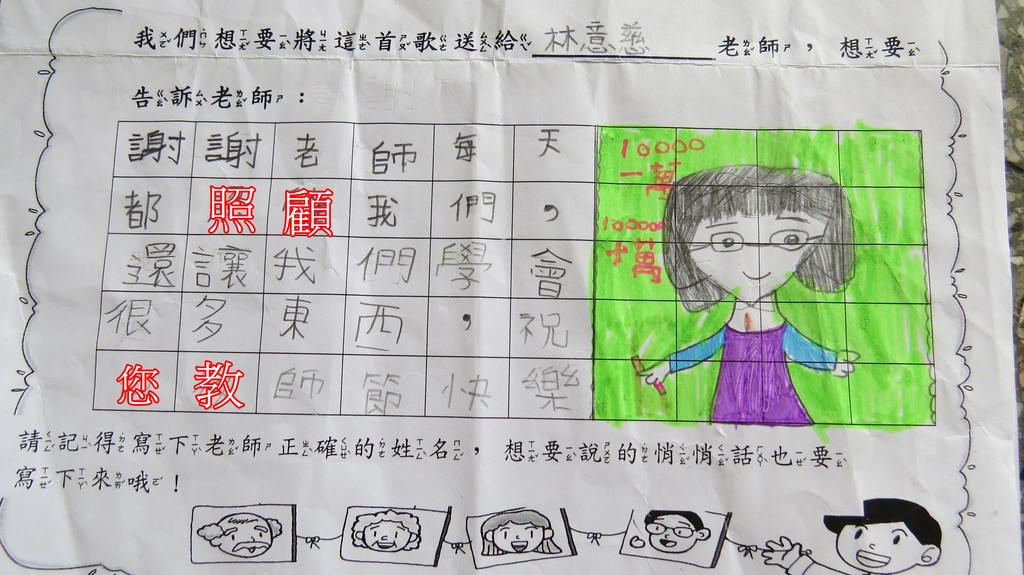 我們想要將這首歌送給 林意慈 老師，想要
告訴老師：
謝謝老師每天
都照顧我們，
還讓我們學會
很多東西，祝
您教師節快樂
10000
一萬
100000
十萬
請記得寫下老師正確的姓名，想要說的悄悄話也要
寫下來哦！